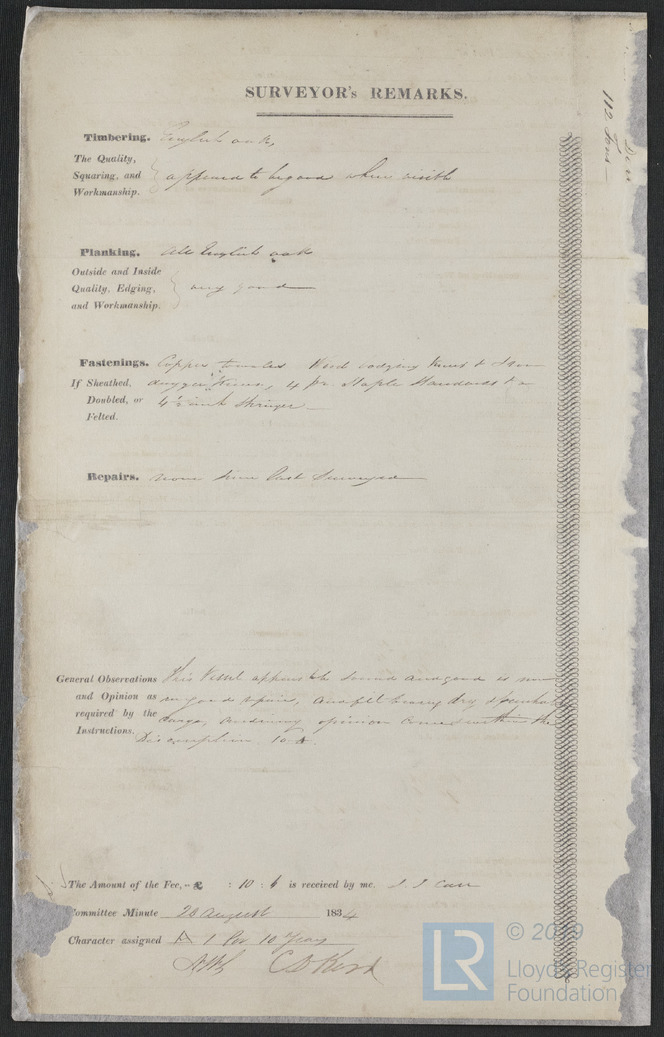 SURVEYOR's REMARKS.
112 Tons
Timbering. English oak,
The Quality,
Squaring, and
Workmanship.
appeared to be good where visible
Planking. All English oak
Outside and Inside
Quality, Edging,
and Workmanship.
very good
Fastenings. Copper Wood lodging Knees & Iron
If Sheathed,
Doubled, or
Felted.
Knees, 4 pr. Staple Standards & a
4½ inch Stringer
Repairs. none since last Surveyed
General Observations
and Opinion as
required by the
Instructions.
This Vessel appears to be sound and good is now
in good repair, and fit to carry dry & perishable
Cargo, opinion within the
Discription 10 A
The Amount of the Fee, £ : 10 : 6 is received by me. J J Carr
Committee Minute 28 August 1834
Character assigned A 1 for 10 Years
© 2019
LR
Lloyd's Register
Foundation